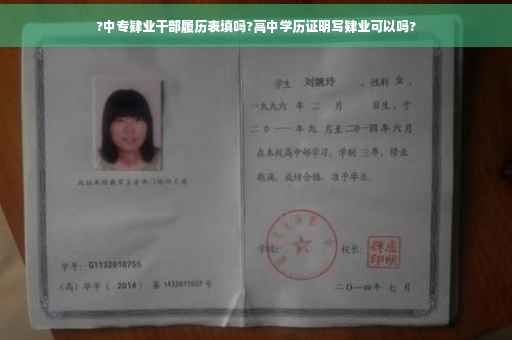 ?中专肄业干部履历表填吗?高中学历证明写肄业可以吗?
学生 刘婉玲 ，性别 女 ，
一九九六 年 二 月 日生，于
二 0 一一 年 九 月至 二0一四 年 六 月
在本校高中部学习，学制 三年，修业
期满，成绩合格，准予毕业。
学号： G1132010755
学校： 校长：
(高) 毕字 ( 2014 ) 第 1432011027 号
二〇一四年 七 月